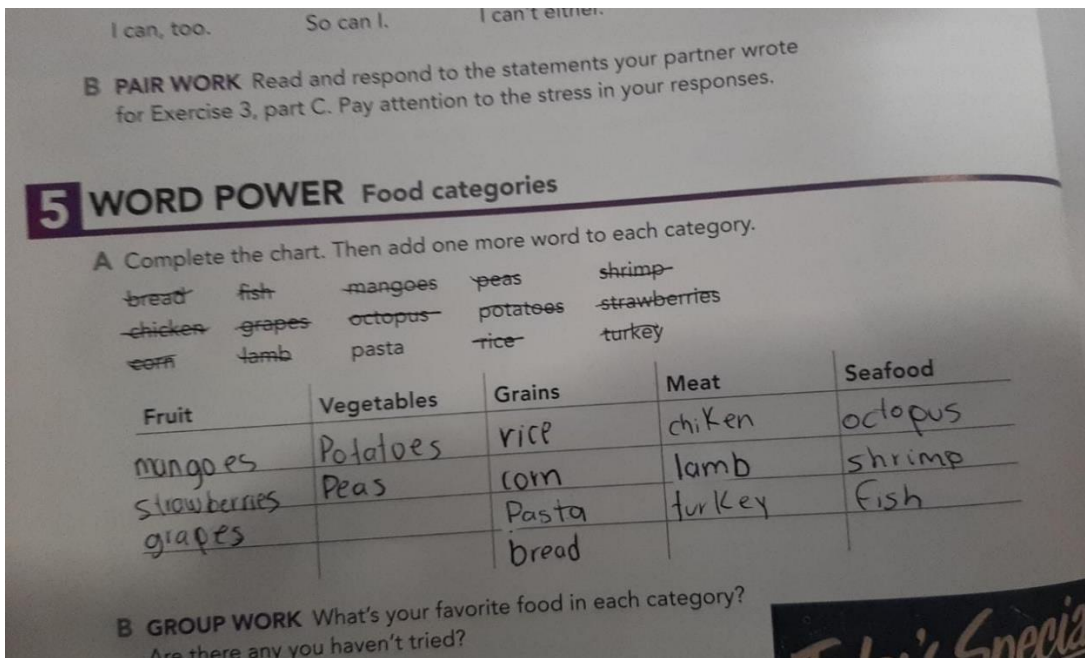 I can, too. So can I. I can't either.
B PAIR WORK Read and respond to the statements your partner wrote
for Exercise 3, part C. Pay attention to the stress in your responses.
5 WORD POWER Food categories
A Complete the chart. Then add one more word to each category.
bread fish mangoes peas shrimp
chicken grapes octopus potatoes strawberries
corn lamb pasta rice turkey
Fruit Vegetables Grains Meat Seafood
mangoes Potatoes rice chiken octopus
strawberries Peas corn lamb shrimp
grapes Pasta turkey fish
bread
B GROUP WORK What's your favorite food in each category?
Are there any you haven't tried?
Specia